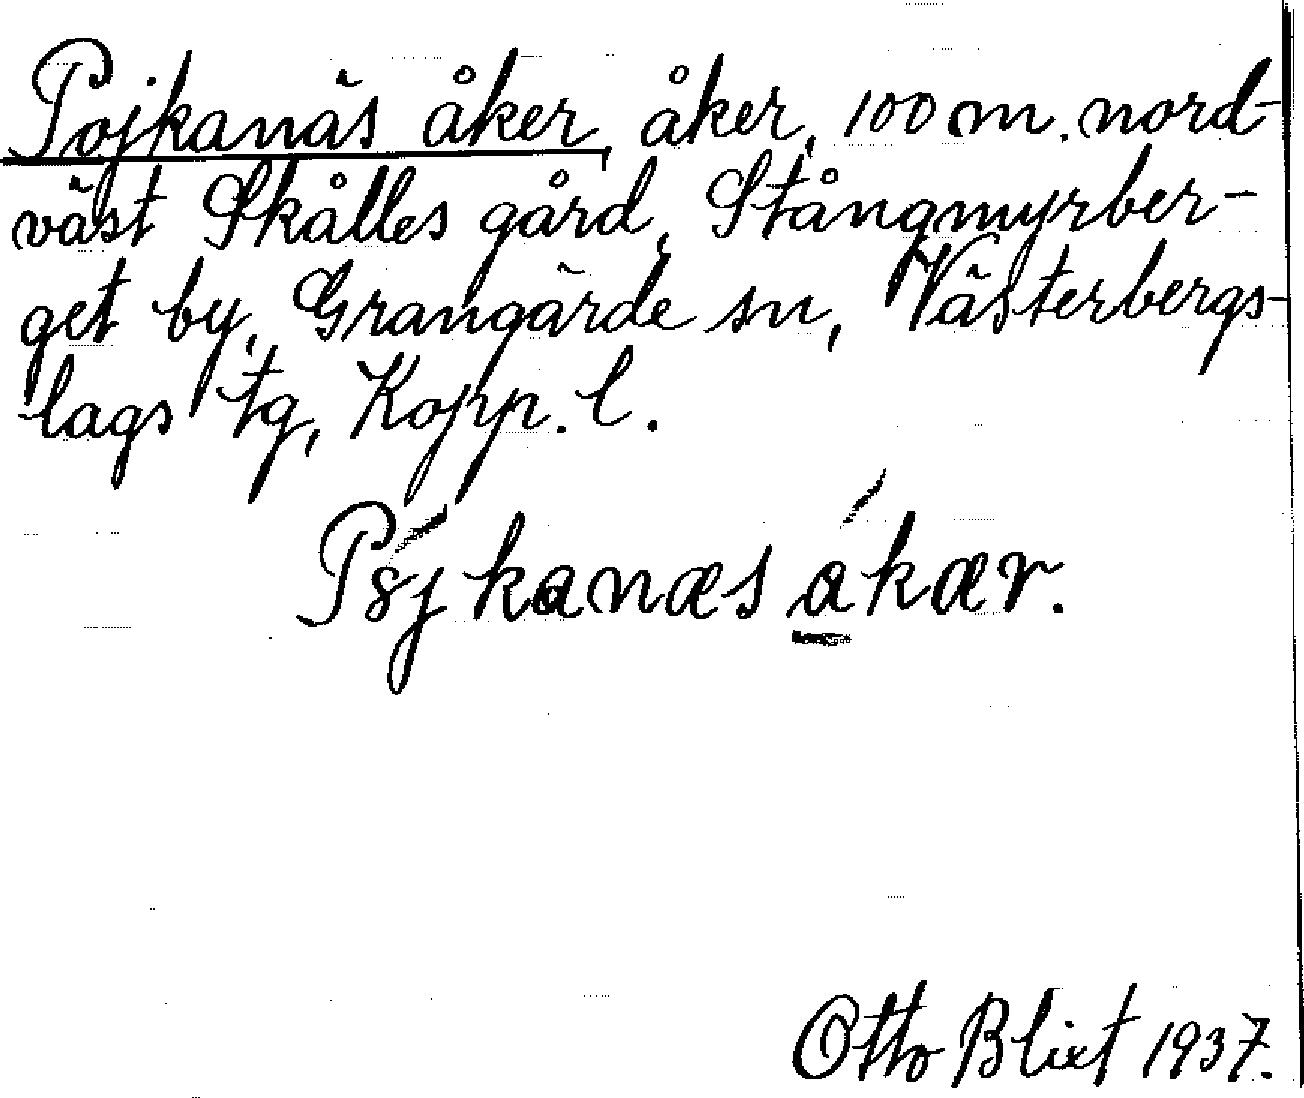 Pojkanäs åker, åker, 100 m. nord-
väst Skålles gård, Stångmyrber-
get by, Grangärde sn, Västerbergs-
lags tg, Kopp. l.
Pójkanæs ákær.
Otto Blixt 1937.